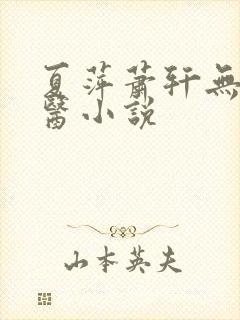 夏萍蕭軒無
醫小說
山本英夫